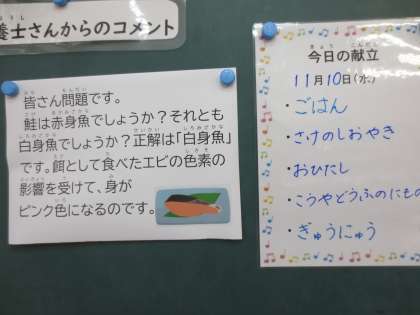 養士さんからのコメント
皆さん問題です。
鮭は赤身魚でしょうか？それとも
白身魚でしょうか？正解は「白身魚」
です。餌として食べたエビの色素の
影響を受けて、身が
ピンク色になるのです。
今日の献立
11月10日(水)
・ごはん
・さけのしおやき
・おひたし
・こうやどうふのにもの
・ぎゅうにゅう